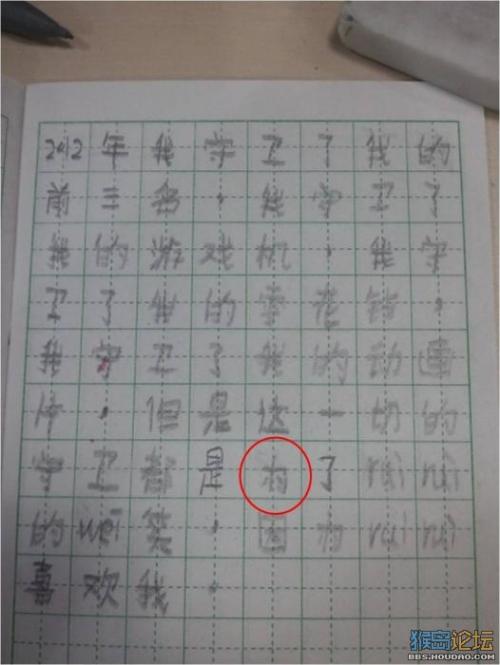 2012年我守卫了我的
前三名，我守卫了
我的游戏机，我守
卫了我的零花钱，
我守卫了我的动画
片，但是这一切的
守卫都是为了rui rui
的wei笑，因为rui rui
喜欢我。
猴岛论坛
BBS.HOUDAO.COM